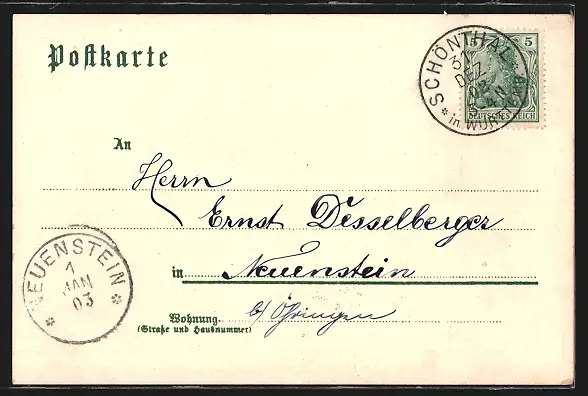 Postkarte
SCHÖNTHAL
31
DEZ
02
4 N
* in WÜRTTEMB *
5 5
DEUTSCHES REICH
An
Herrn
Ernst Desselberger
in Neuenstein
b/ Öhringen
Wohnung
(Straße und Hausnummer)
NEUENSTEIN
1
JAN
03